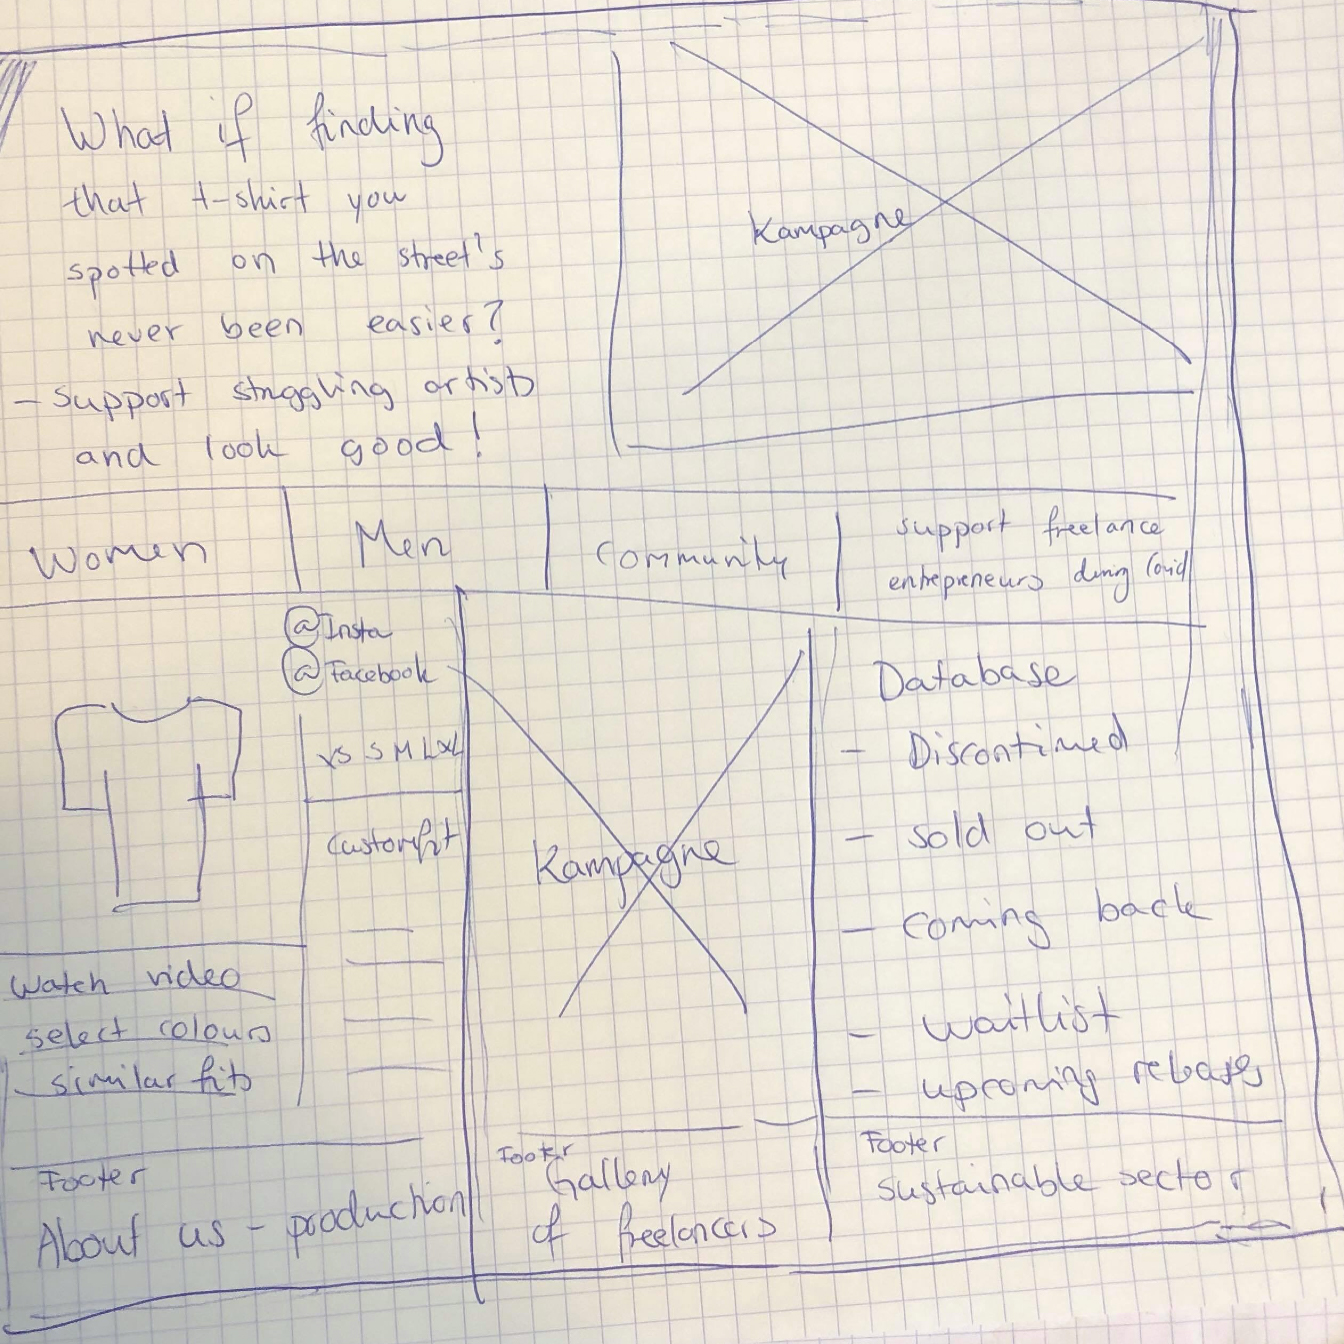 What if finding
that t-shirt you
spotted on the street's
never been easier?
- support struggling artists
and look good!
Kampagne
Women
Men
Community
support freelance
entrepreneurs during Covid
@Insta
@Facebook
XS S M L XL
Customfit
Watch video
select colours
similar fits
Kampagne
Database
- Discontinued
- sold out
- coming back
- waitlist
- upcoming releases
Footer
About us - production
Footer
Gallery
of freelancers
Footer
sustainable sector